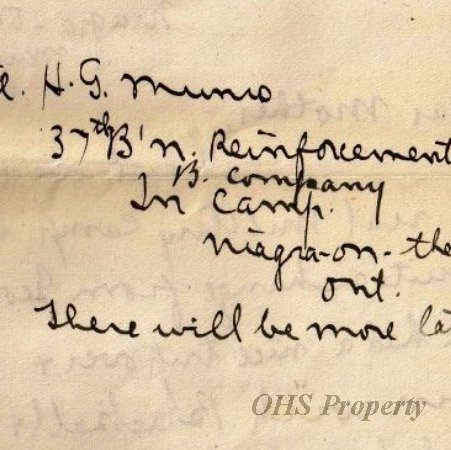 H. G. Munro
37th B'n. Reinforcement
B. Company
In Camp.
Niagra-on-the
Ont.
There will be more
OHS Property